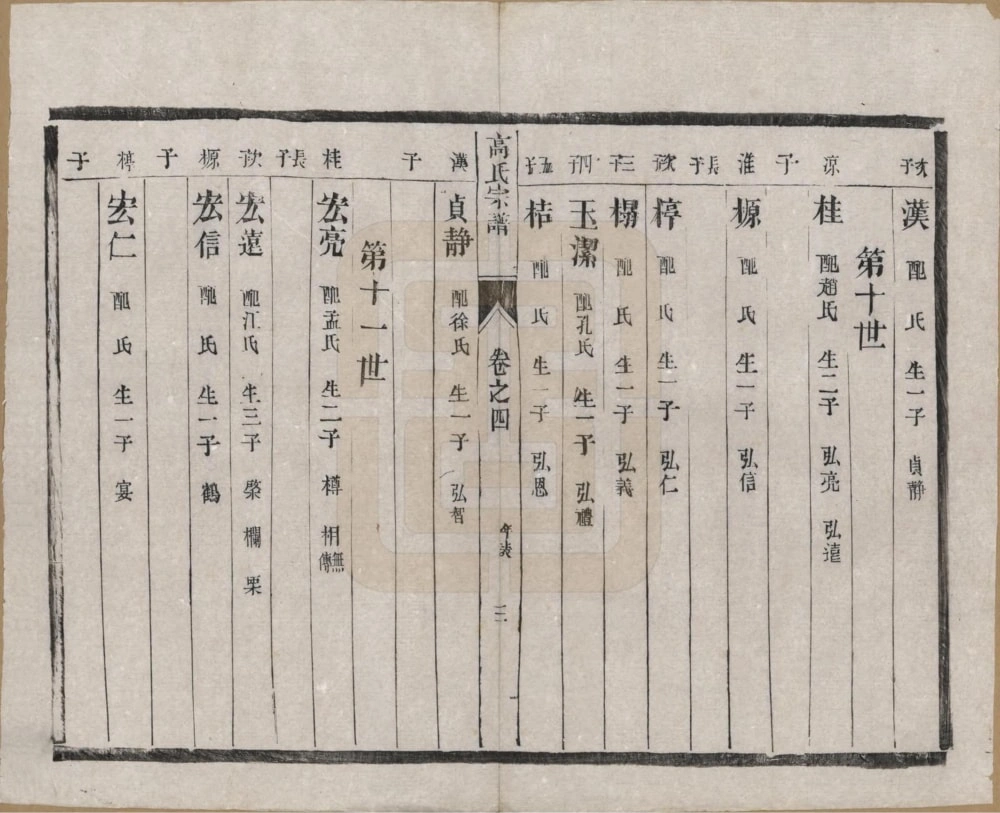 次子 漢 配 氏 生一子 貞靜
第十世
涼子 桂 配趙氏 生二子 弘亮 弘遠
淮長子 榞 配 氏 生一子 弘信
次子 椁 配 氏 生一子 弘仁
三子 榻 配 氏 生一子 弘義
四子 玉潔 配孔氏 生一子 弘禮
五子 桔 配 氏 生一子 弘恩
高氏宗譜 卷之四 年表 三
漢子 貞靜 配徐氏 生一子 弘智
第十一世
桂長子 宏亮 配孟氏 生二子 樽 相無傳
次子 宏遠 配江氏 生三子 榮 欄 栗
榞子 宏信 配 氏 生一子 鶴
椁子 宏仁 配 氏 生一子 宴